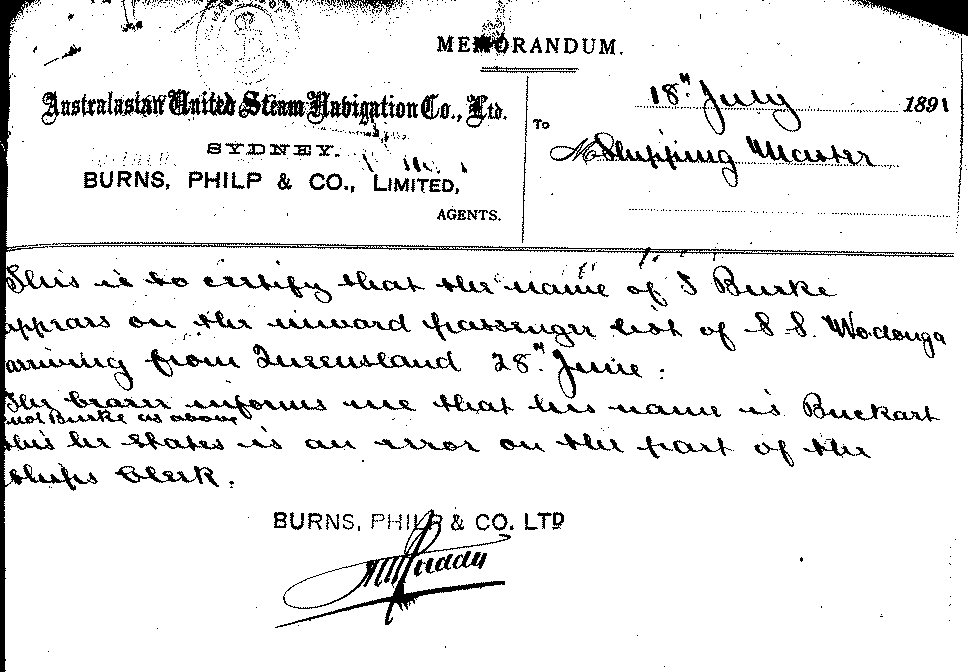 MEMORANDUM.
Australasian United Steam Navigation Co., Ltd.
SYDNEY.
BURNS, PHILP & CO., LIMITED,
AGENTS.
18th July 1891
To
Shipping Master
This is to certify that the name of J Burke
appears on the inward passenger list of S.S. Wodonga
arriving from Queensland 28th June.
The bearer informs me that his name is Buckart
not Burke as above
this he states is an error on the part of the
ships clerk.
BURNS, PHILP & CO. LTD